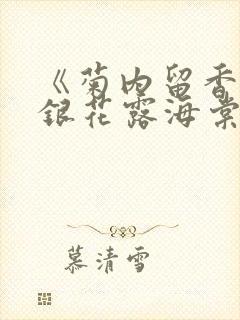 《菊内留香
银花露海棠
慕清雪